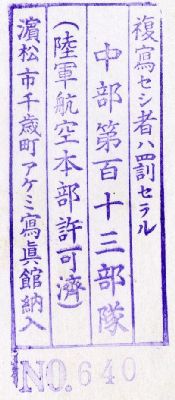 複寫セシ者ハ罰セラル
中部第百十三部隊
(陸軍航空本部許可濟)
濱松市千歳町アケミ寫眞館納入
NO.640